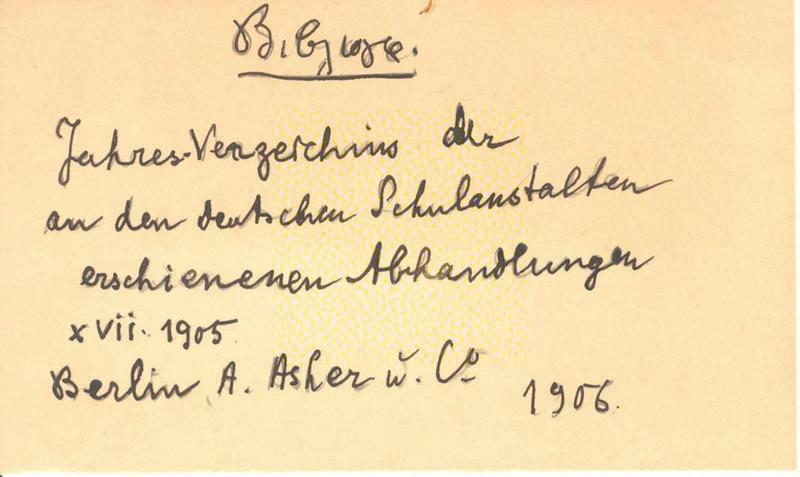 Jahres-Verzeichnis der
an den deutschen Schulanstalten
erschienenen Abhandlungen
XVii. 1905
Berlin A. Asher u. Co
1906.